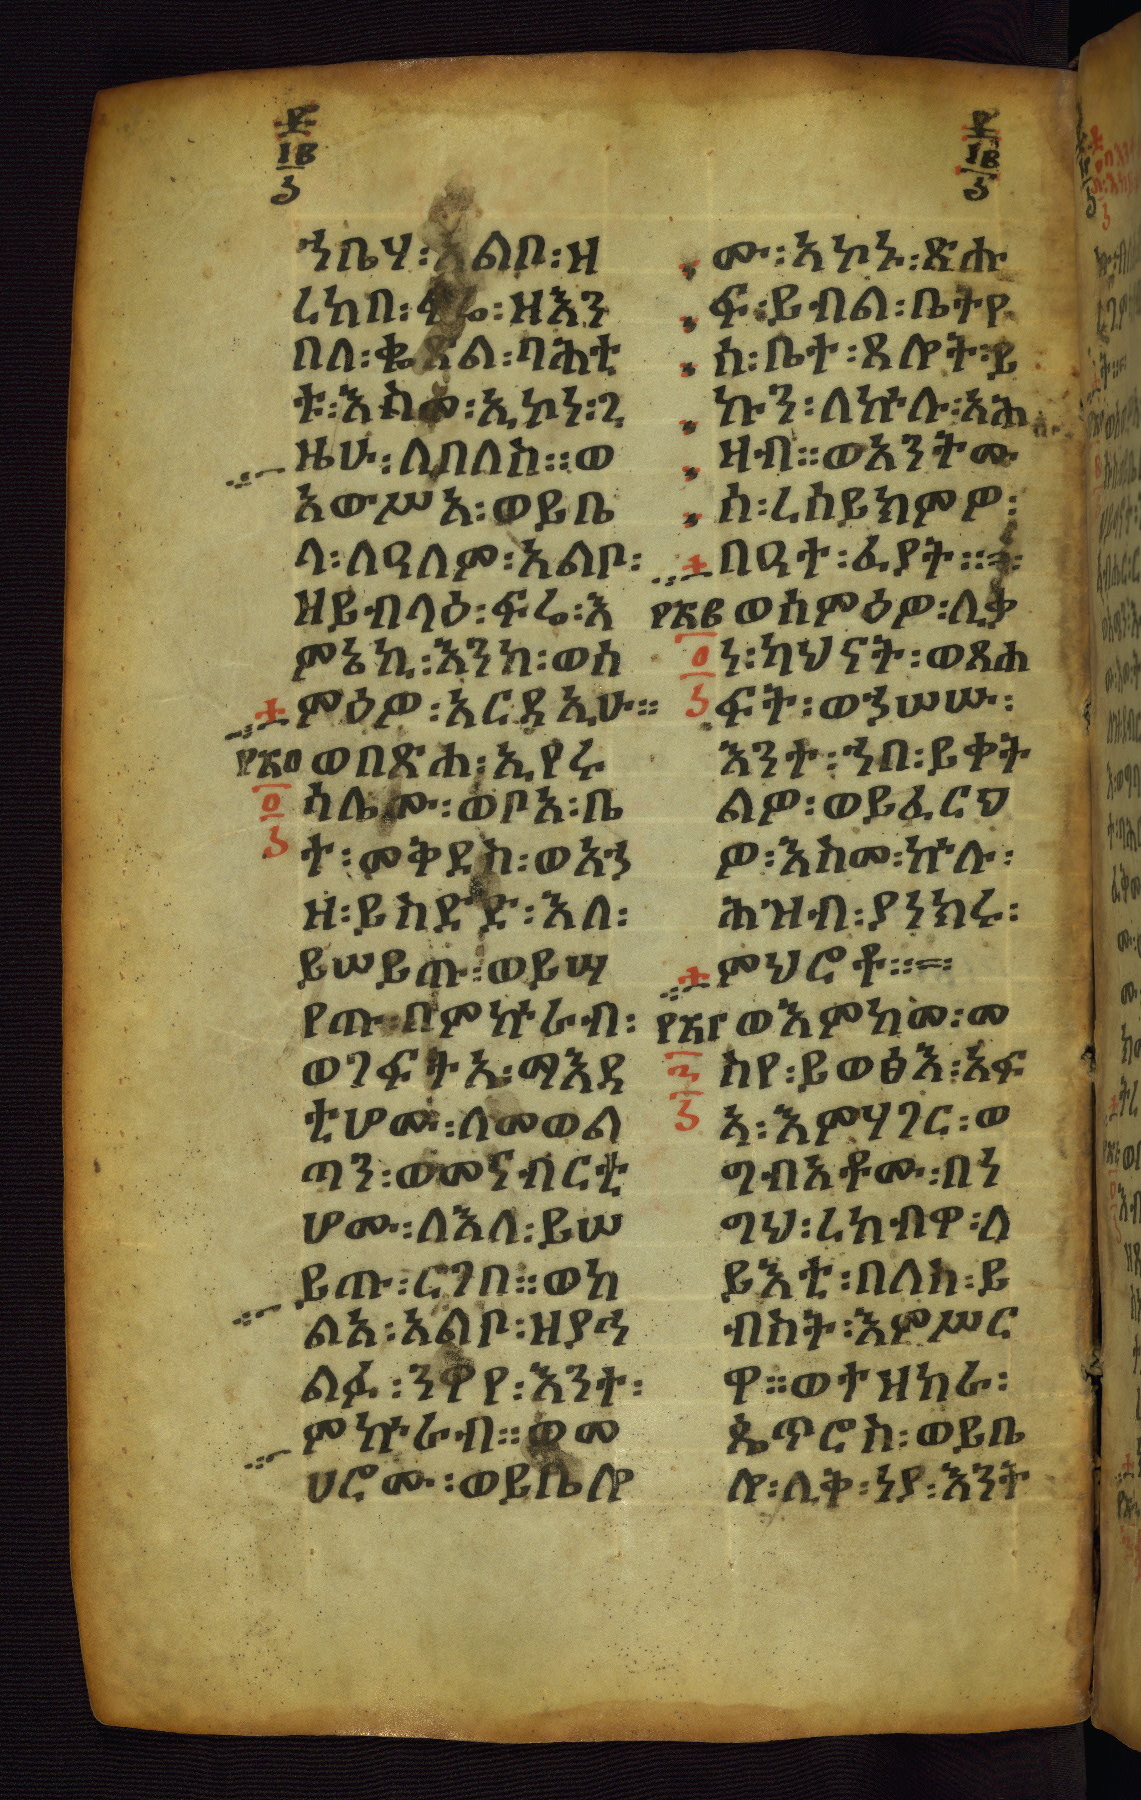 ኀቤሃ፡አልቦ፡ዘ
ረከበ፡ፍሬ፡ዘእን
በለ፡ቈጽል፡ባሕቲ
ቱ፡እስመ፡ኢኮነ፡ጊ
ዜሁ፡ለበለስ፡፡ወ
አውሥአ፡ወይቤ
ላ፡ለዓለም፡አልቦ፡
ዘይብላዕ፡ፍሬ፡እ
ምኔኪ፡እንከ፡ወሰ
ምዕዎ፡አርዳኢሁ፡፡
፻፳፬ ወበጽሐ፡ኢየሩ
ሳሌሙ፡ወቦአ፡ቤ
ተ፡መቅደስ፡ወአኀ
ዘ፡ይስድድ፡እለ፡
ይሠይጡ፡ወይሣ
የጡ፡በምኵራብ፡
ወገፍትአ፡ማእዳ
ቲሆሙ፡ለመወል
ጣን፡ወመናብርቲ
ሆሙ፡ለእለ፡ይሠ
ይጡ፡ርግበ፡፡ወከ
ልአ፡አልቦ፡ዘያኀ
ልፊ፡ንዋየ፡እንተ፡
ምኵራብ፡፡ወመ
ሀሮሙ፡ወይቤሎ
ሙ፡አኮኑ፡ጽሑ
ፍ፡ይብል፡ቤትየ
ሰ፡ቤተ፡ጸሎት፡ይ
ኩን፡ለኵሉ፡አሕ
ዛብ፡፡ወአንትሙ
ሰ፡ረሰይክምዎ፡
በዓተ፡ፈያት፡፡
ወሰምዕዎ፡ሊቃ
ነ፡ካህናት፡ወጸሐ
ፍት፡ወኀሠሡ፡
እንተ፡ኀበ፡ይቀት
ልዎ፡ወይፈርህ
ዎ፡እስመ፡ኵሉ፡
ሕዝብ፡ያነክሩ፡
ምህሮቶ፡፡
ወእምከመ፡መ
ስየ፡ይወፅእ፡አፍ
አ፡እምሃገር፡ወ
ግብአቶሙ፡በነ
ግህ፡ረከብዋ፡ለ
ይእቲ፡በለስ፡ይ
ብስት፡እምሥር
ዋ፡፡ወተዘከራ፡
ጴጥሮስ፡ወይቤ
ሎ፡ሊቅ፡ነያ፡እንት